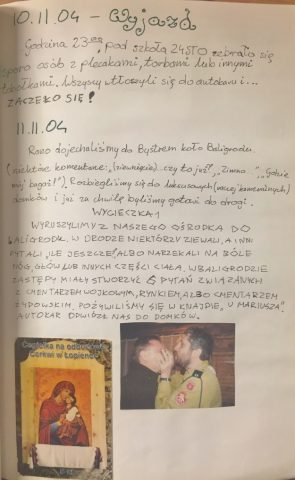 10.11.04 - Wyjazd
Godzina 23:00, pod szkołą 24STO zebrało się
sporo osób z plecakami, torbami lub innymi
tobołkami. Wszyscy wtłoczyli się do autobusu i...
ZACZĘŁO SIĘ!
11.11.04
Rano dojechaliśmy do Bystrem koło Baligrodu.
(niektóre komentarze: (ziewnięcie)...czy to już?", "Zimno", "Gdzie
mój bagaż!"). Rozbiegliśmy się do luksusowych (raczej kameralnych)
domków i już za chwilę byliśmy gotowi do drogi.
WYCIECZKA 1
WYRUSZYLIŚMY Z NASZEGO OŚRODKA DO
BALIGRODU. W DRODZE NIEKTÓRZY ZIEWALI, A INNI
PYTALI „ILE JESZCZE?" ALBO NARZEKALI NA BÓLE
NÓG, GŁÓW LUB INNYCH CZĘŚCI CIAŁA. W BALIGRODZIE
ZASTĘPY MIAŁY STWORZYĆ 6 PYTAŃ ZWIĄZANYCH
Z CMENTARZEM WOJSKOWYM, RYNKIEM, ALBO CMENTARZEM
ŻYDOWSKIM. POŻYWILIŚMY SIĘ W KNAJPIE „U MARIUSZA".
AUTOKAR ODWIÓZŁ NAS DO DOMKÓW.
Cegiełka na odbudowę
Cerkwi w Łopience